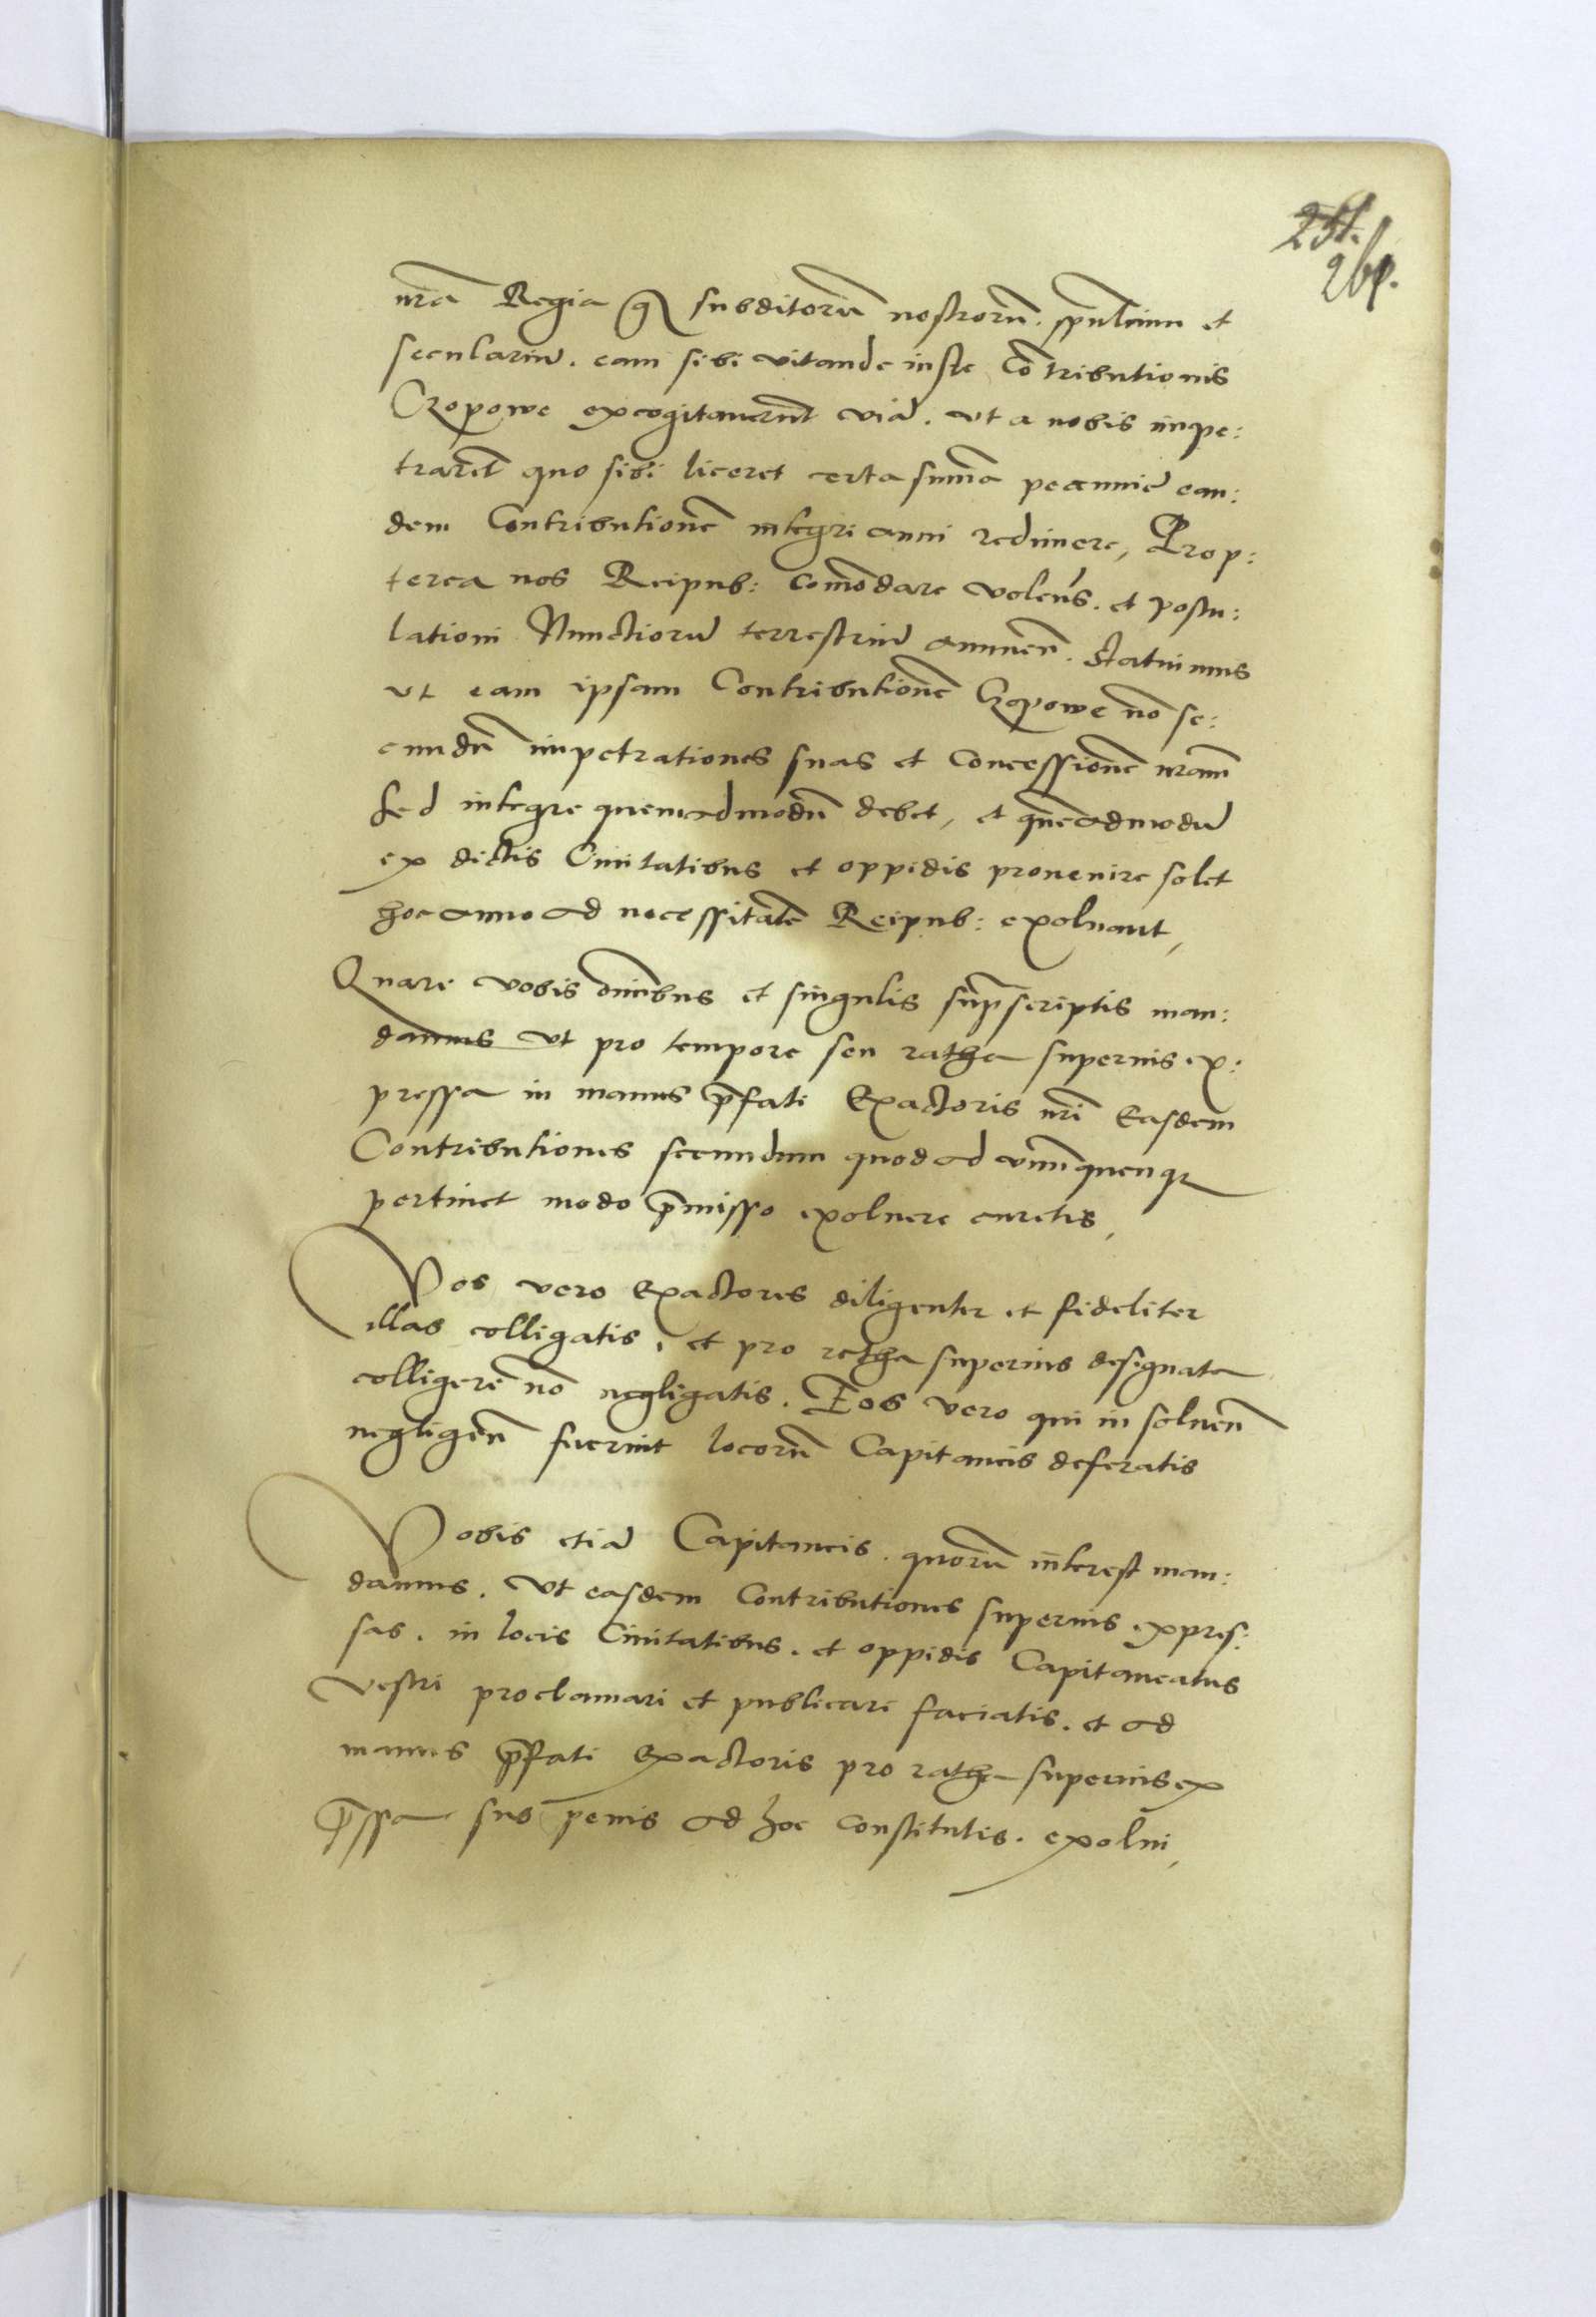 261.
nr̃a Regia q̃ subditorũ nostrorũ. sp̃ualium et
seculariũ. eam sibi vitande iuste Cõtributionis
Czopowe excogitauerũt viã. vt a nobis impe:
trarẽt quo sibi liceret certa summa pecunie ean:
dem Contributionẽ integri anni redimere, Prop:
terea nos Reipub: Com̃odare volen̄s. et postu:
lationi Nunctiorũ terrestriũ annuen̄. Statuimus
vt eam ipsam Contributionẽ Czopowe nõ se:
cundũ impetrationes suas et Concessionẽ nr̃am
sed integre quemadmodũ debet, et quẽadmodũ
ex dictis Ciuitatibus et oppidis prouenire solet
hoc anno ad necessitatẽ Reipub: exoluant,
Quare vobis õmibus et singulis sup̃scriptis man:
damus vt pro tempore seu ratha superius ex:
pressa in manus p̃fati Exactoris nr̃i Easdem
Contributiones secundum quod ad vnũquenq3
pertinet modo p̃misso exoluere curetis,
Vos vero Exactores diligenter et fideliter
illas colligatis, et pro ratha superius designata
colligere nõ negligatis. Eos vero qui in soluen̄
negligen̄ fuerint locorũ Capitaneis deferatis
Vobis etiã Capitaneis. quorũ interest man:
damus. Vt easdem Contributiones superius expres:
sas. in locis Ciuitatibus. et oppidis Capitaneatus
vestri proclamari et publicari faciatis. et ad
manus p̃fati Exactoris pro ratha superius ex
p̃ssa sub penis ad hoc constitutis. exolui,